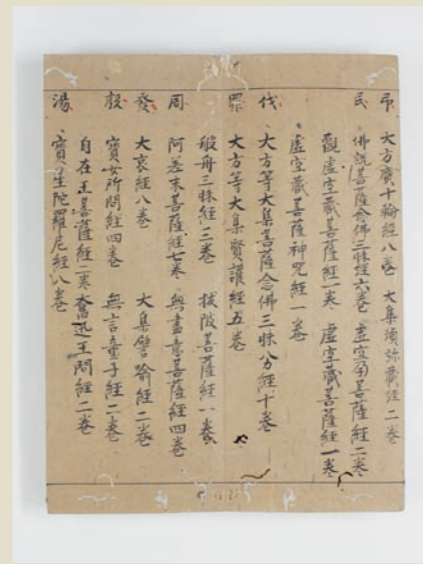 吊 大方廣十輪經八卷 大集須弥藏經二卷
民 佛說菩薩念佛三昧經六卷 虛空孕菩薩經二卷
觀虛空藏菩薩經一卷 虛空藏菩薩經一卷
虛空藏菩薩神咒經一卷
伐 大方等大集菩薩念佛三昧分經十卷
罪 大方等大集賢護經五卷
般舟三昧經三卷 拔陂菩薩經一卷
周 阿差末菩薩經七卷 無盡意菩薩經四卷
發 大哀經八卷 大集譬喻經二卷
殷 寳女所問經四卷 無言童子經二卷
自在王菩薩經二卷 奮迅王問經二卷
湯 寳星陀羅尼經八卷